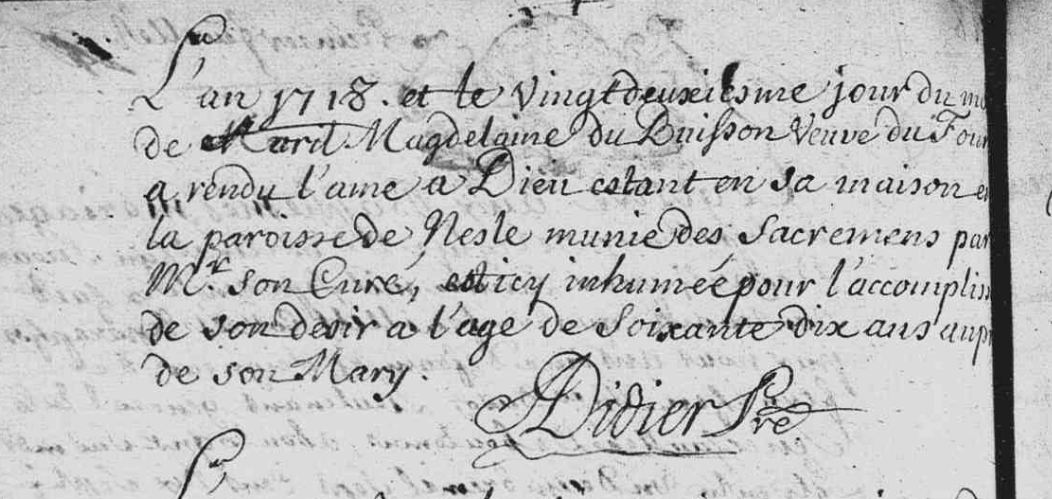 L'an 1718. et le vingtdeuxiesme jour du mo
de Avril Magdelaine du Buisson Veuve du Four
a rendu l'ame a Dieu estant en sa maison e
la paroisse de Nesle munie des Sacremens par
Mr. son Curé, est icy inhumée pour l'accomplis
de son desir a l'age de soixante dix ans aupr
de son Mary.
Didier Pre